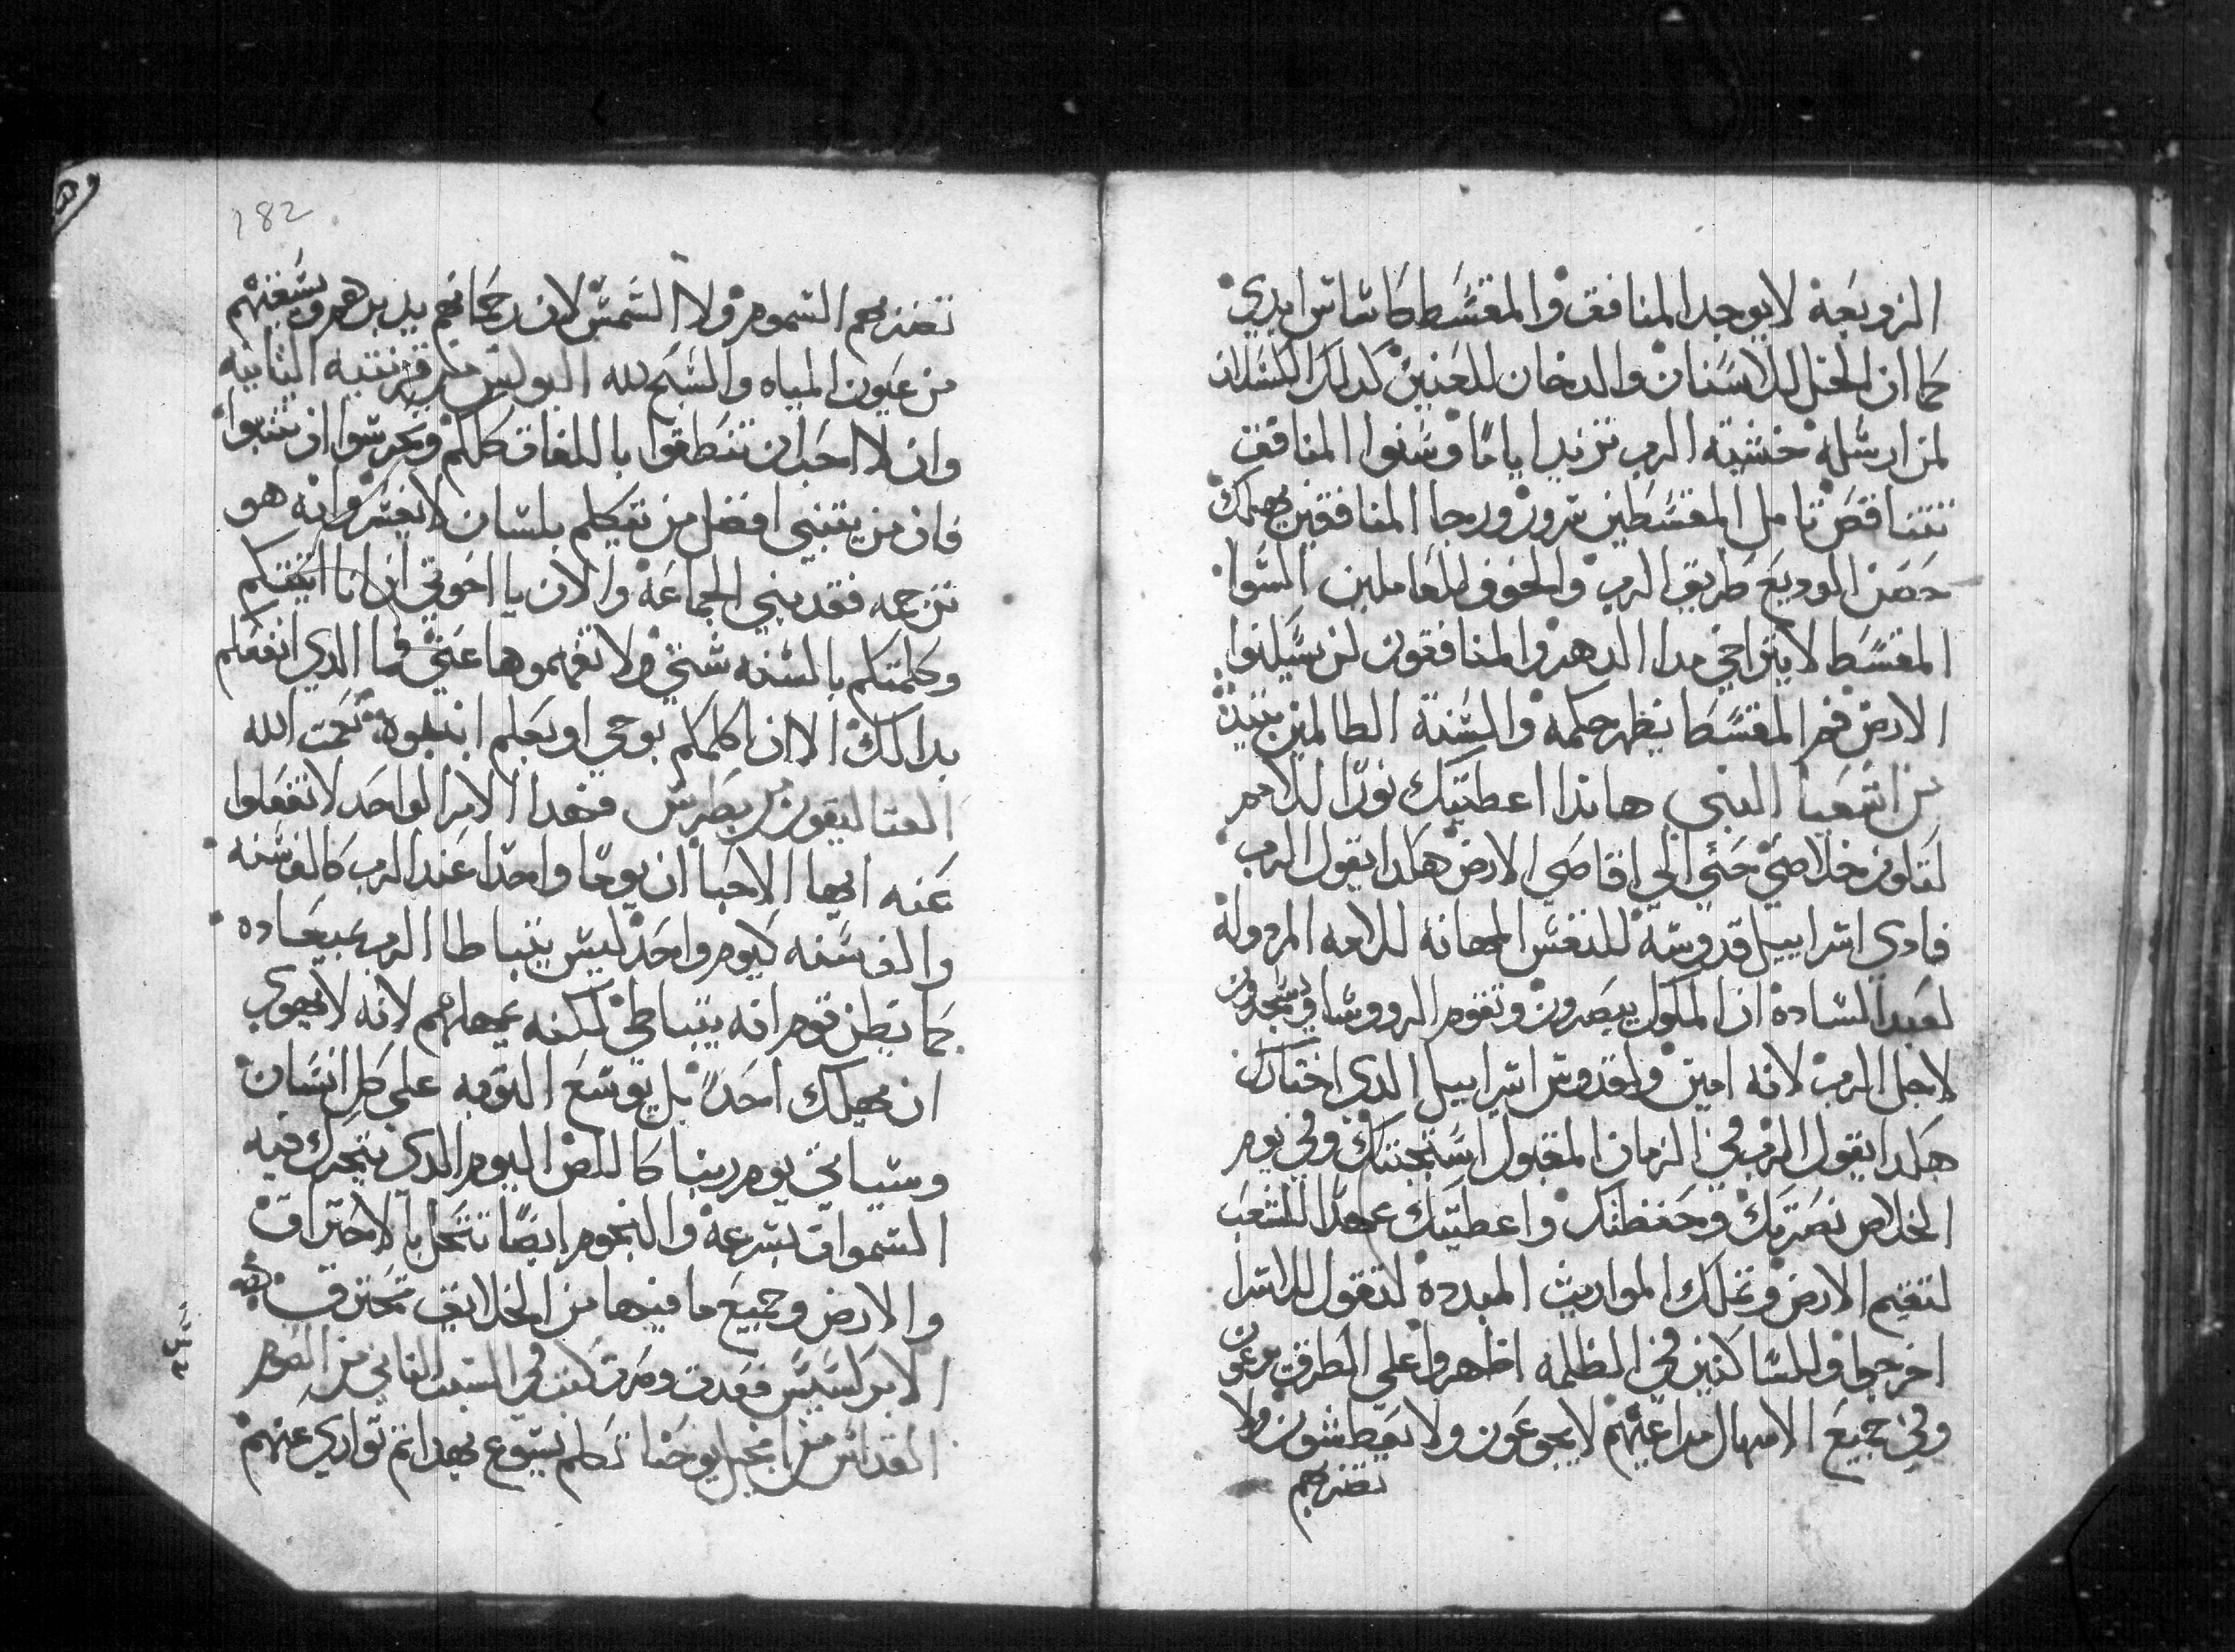 الزوبعة لا يوجد المنافق والمقسط كاساس ابدي
كما ان الخل للاسنان والدخان للعنين كدلك
لمن ارسله خشية الرب تزيد اياما وسنوا المنافق
تتناقص تامل المقسطين سرور ورجا المنافقين يهلك
حصن الوديع طريق الرب والخوف للعاملين السوا
المقسط لا يتراخي مدا الدهر والمنافقون لن يسكنوا
الارض فم المقسط يظهر حكمه والسنة الظالمين تبيد
من اشعيا النبي هاندا اعطيتك نورا للامم
لتكون خلاصي حتي الي اقاصي الارض هكدا يقول الرب
فادي اسراييل قدوسه للنفس المهانه للامه المردوله
لعبد الساده ان الملوك يبصرون وتقوم الروسا ويسجدون
لاجل الرب لانه امين ولقدوس اسراييل الدي اختارك
هكدا يقول الرب في الزمان المقبول استجبتك وفي يوم
الخلاص نصرتك وحفظتك واعطيتك عهدا للشعب
لتقيم الارض وتملك المواريث المبدده لتقول للاسرا
اخرجوا وللساكنين في الظلمه اظهروا علي الطرق يرعون
وفي جميع الاسهال مراعيهم لا يجوعون ولا يعطشون ولا
تضربهم
182
تضربهم السموم ولا الشمس لان رحمانهم يدبرهم ويسقيهم
من عيون المياه والسبح لله البولس من قرنتيه الثانيه
وان لا احب ان تنطقوا باللغات كلكم وتحرسوا ان تتنبوا
فان من يتنبي افضل من يتكلم بلسان لا يفسر وانه هو
ترجمه فقد يبني الجماعة والان يا اخوتي ان انا اتيتكم
وكلمتكم بالسنه شتي ولا تفهموها عني فما الدي انفعكم
بدالك الا ان اكلمكم بوحي او بعلم او بنبوة تمت الله
القتاليقون بطرس فهدا الامر الواحد لا تغفلوا
عنه ايها الاحبا ان يوما واحدا عند الرب كالف سنه
والف سنه كيوم واحد ليس يتباطا الرب بميعاده
كما يظن قوم انه يتباطي لكنه يمهلهم لانه لا يهوي
ان يهلك احدا بل يوسع التوبه علي كل انسان
وسياتي يوم ربنا كاللص اليوم الدي تتحرك فيه
السموات بسرعة والنجوم ايضا تنحل بالاحتراق
والارض وجميع ما فيها من الخلايق تحترق
الابركسيس فقدت ومرت كتبت في السبت الثاني من الصوم
القداس من انجيل يوحنا تكلم يسوع بهدا تم تواري عنهم